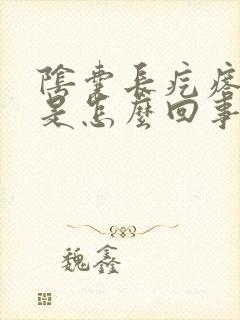 陰囊長疙瘩
是怎麼回事
魏鑫